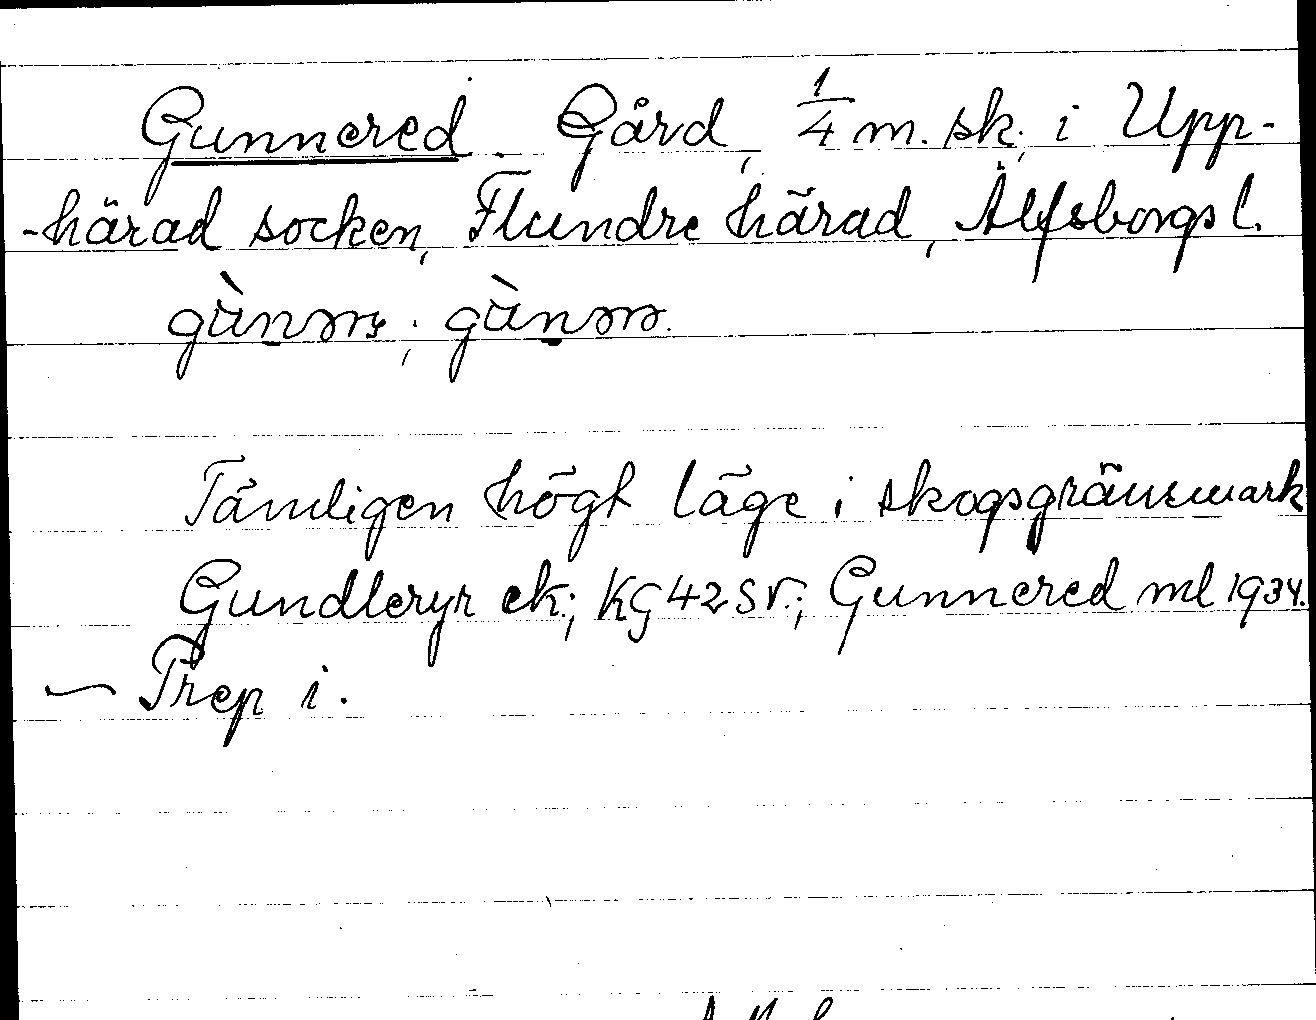 Gunnered Gård, 1/4 m. sk. i Upp-
-härad socken, Flundre härad, Älfsborgs l.
Tämligen högt läge i skogsgränsmark
Gundleryr ek.; KG 42 SV.; Gunnered ml 1934.
— Trep i.